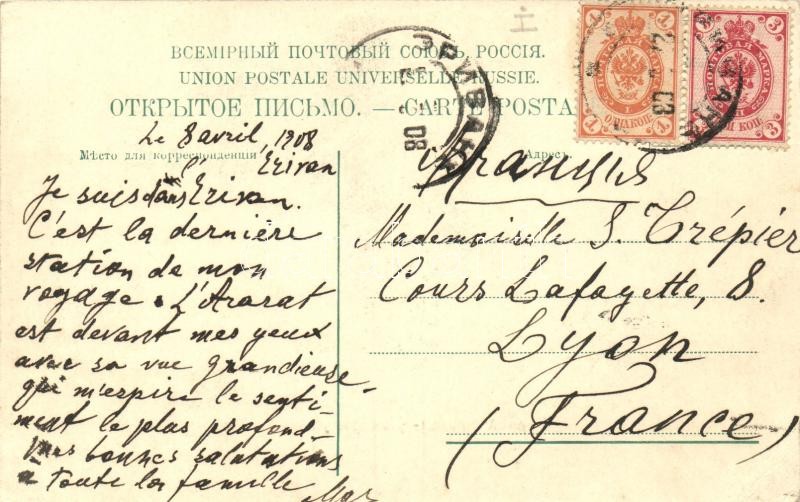 ВСЕМІРНЫЙ ПОЧТОВЫЙ СОЮЗЪ, РОССІЯ.
UNION POSTALE UNIVERSELLE RUSSIE.
ОТКРЫТОЕ ПИСЬМО. — CARTE POSTA
Le 8 avril, 1908
Мѣсто для корреспонденціи
Erivan
Je suis dans Erivan.
C'est la dernière
station de mon
voyage. L'Ararat
est devant mes yeux
avec sa vue grandieuse
qui m'espire le senti-
ment le plus profond
Mes bonnes salutations
à toute la famille
Адресъ
Франція
Mademoiselle S. Trépier
Cours Lafayette, 8.
Lyon
(France)
ЭРИВАНЬ
08
1 1
ОДНА КОП.
1 1
3 3
ПОЧТОВАЯ МАРКА
КОП.
3 3